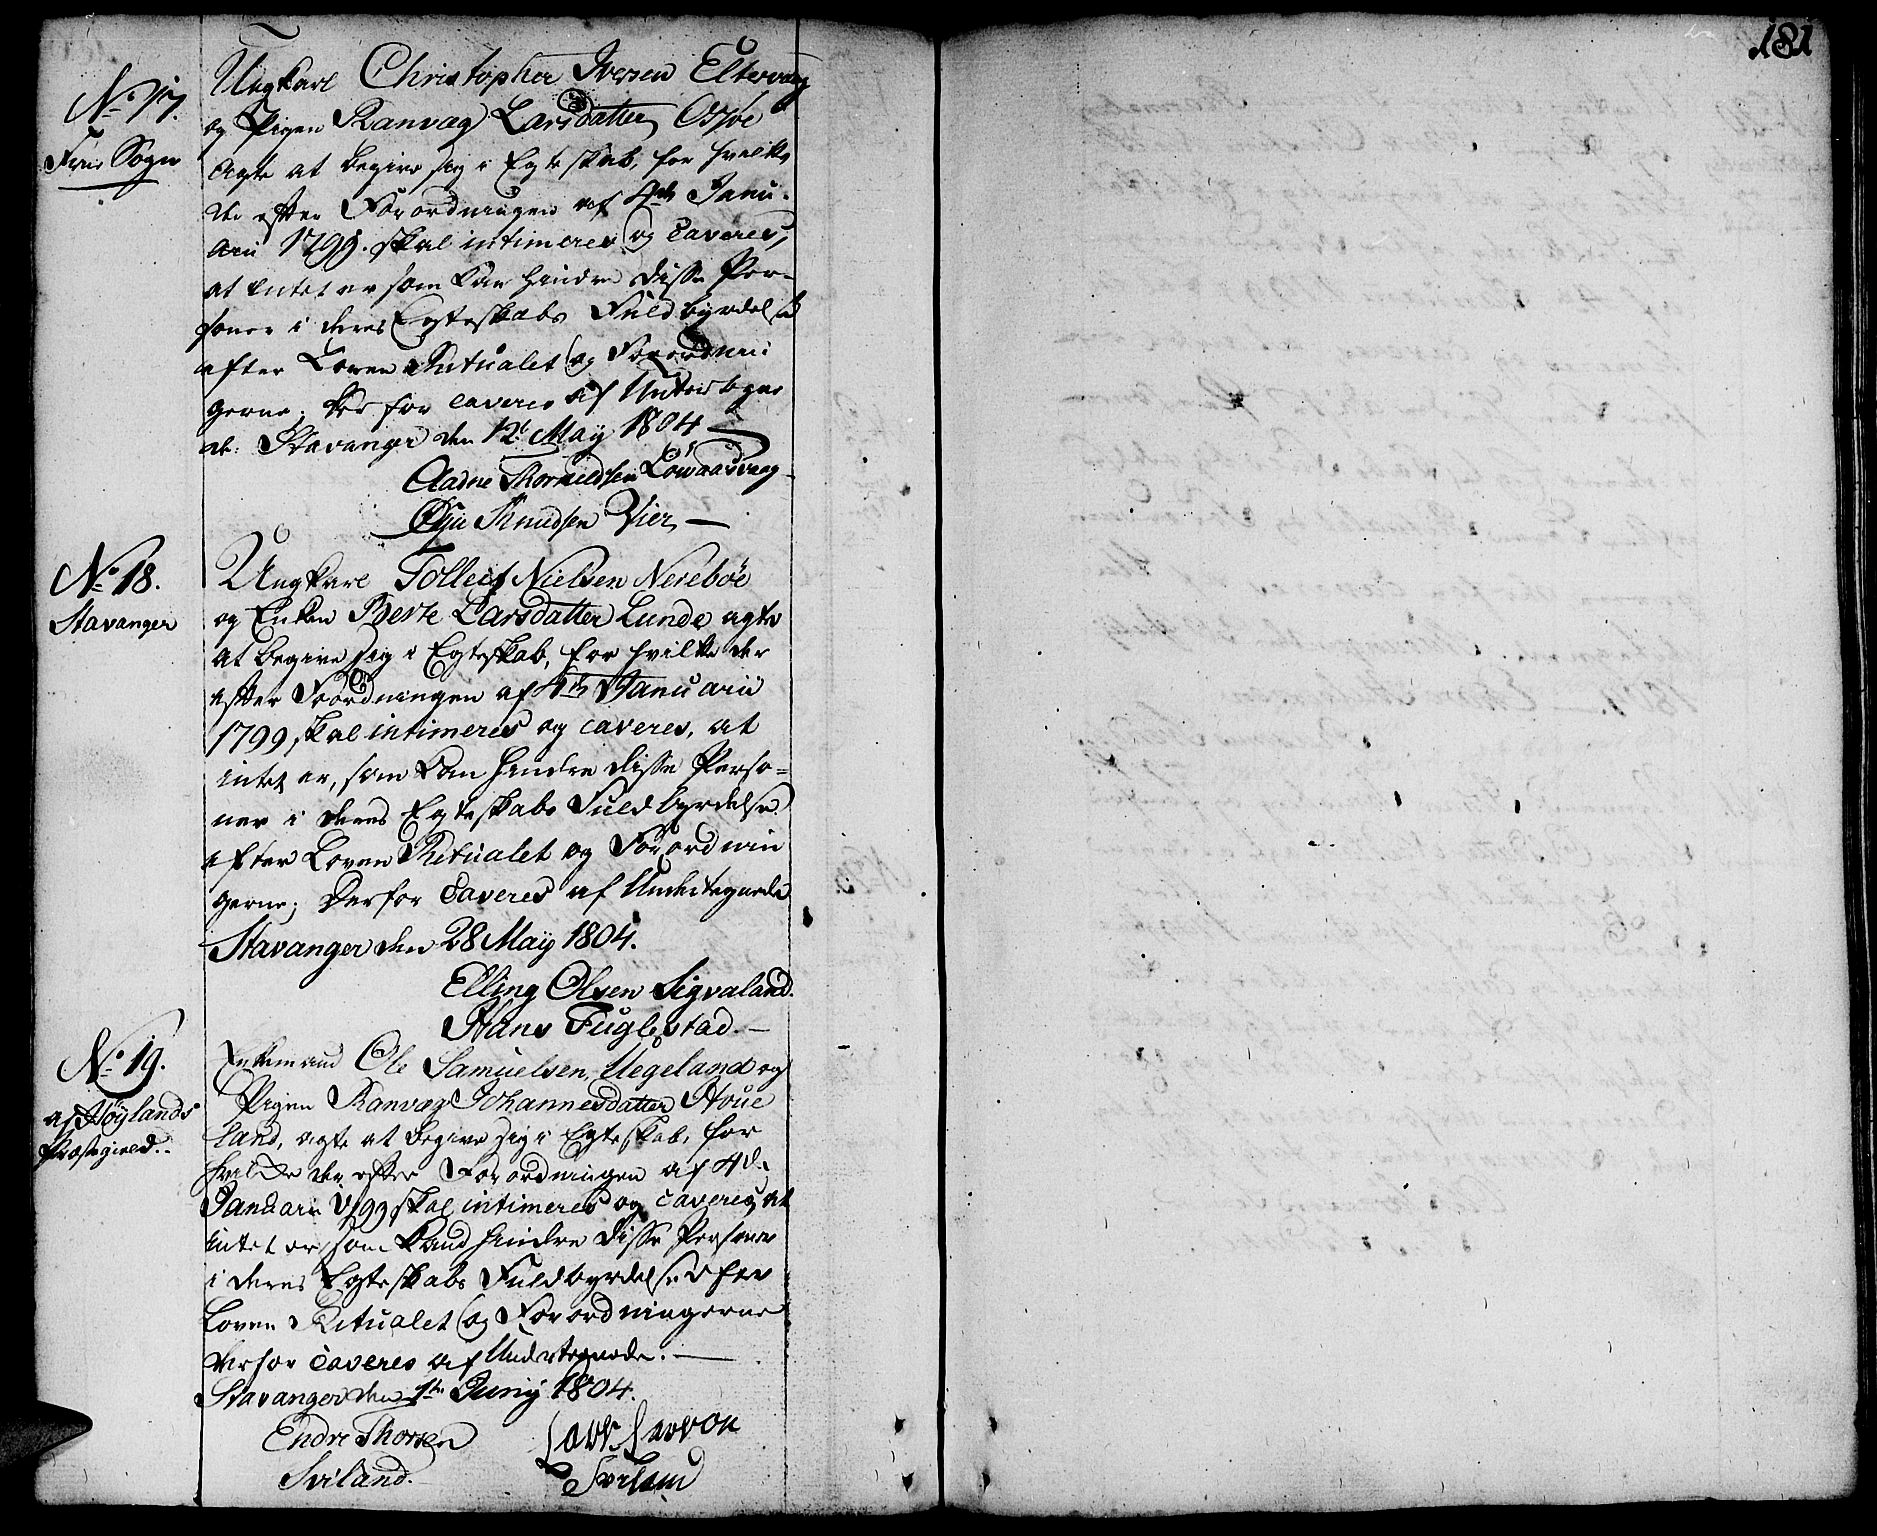 181
No 17.
Ungkarl Christopher Iversen Eltervaag
og Pigen Ranvaeg Larsdatter
Sogn
agte at begive sig i Egteskab, for hvilke
der efter Forordningen af 4de Janu-
arii 1799. skal intimeres og caveres,
at intet er som kan hindre disse Per-
soner i deres Egteskabs Fuldbyrdelse
efter Loven Ritualet og Forordnin
gerne; derfor caveres af Undertegne
de. Stavanger den 12t May 1804
Aadne
Knudsen Vier
No 18.
Stavanger
Ungkarl Tolleif Nielsen Nerebøe
og Enken Berte Larsdatter Lunde agte
at begive sig i Egteskab, for hvilke der
efter Foordningen af 4de Januarii
1799, skal intimeres og caveres, at
intet er, som kan hindre disse Perso=
ner i deres Egteskabs Fuldbyrdelse
efter Loven Ritualet og Forordnin
gerne; Derfor Caveres af Undertegnede
Stavanger den 28 May 1804.
Elling Olsen Sigvaland.
Hans Fuglestad.
No 19.
af Høylands
Præstegield.
Enkemand Ole Samuelsen Uegeland og
Pigen Ranvaeg Johannesdatter Houe
land, agte at begive sig i Egteskab, for
hvilke der efter Forordningen af 4de
Januarii 1799 skal intimeres og caveres, at
intet er, som kand hindre disse Personer
i deres Egteskabs Fuldbyrdelse efter
Loven Ritualet og Forordningerne
derfor caveres af Undertegnede.
Stavanger den 1te Junij 1804.
Endre Thorsen
Sviland.